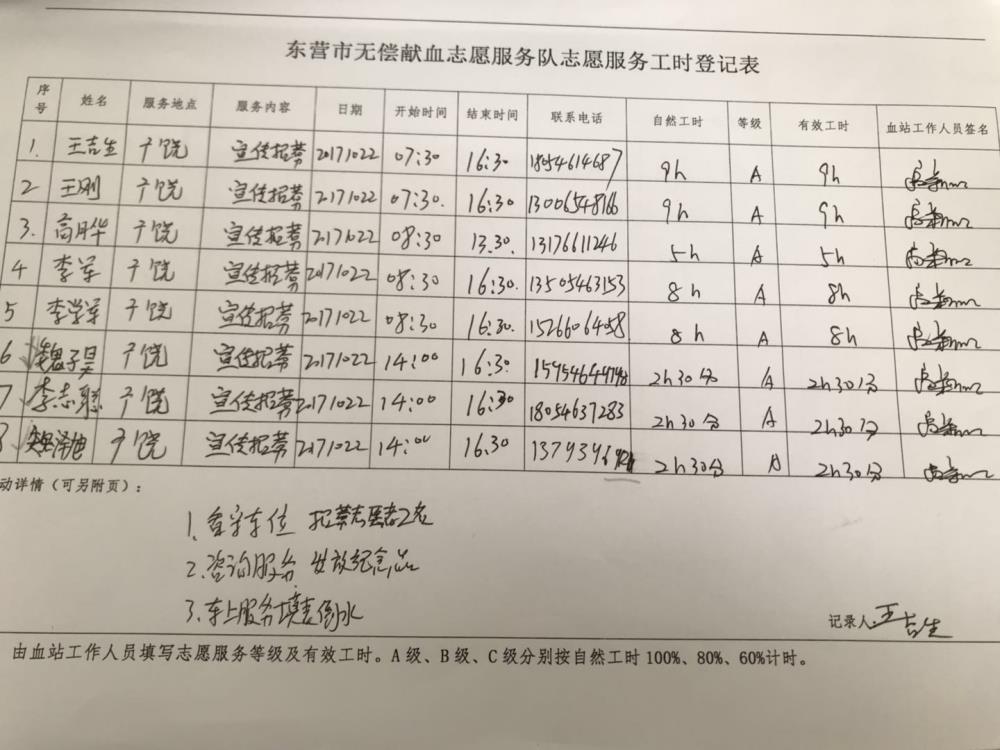 东营市无偿献血志愿服务队志愿服务工时登记表
序号 姓名 服务地点 服务内容 日期 开始时间 结束时间 联系电话 自然工时 等级 有效工时 血站工作人员签名
1. 王吉生 广饶 宣传招募 20171022 07:30 16:30 18054614687 9h A 9h
2 王刚 广饶 宣传招募 20171022 07:30. 16:30 13006548166 9h A 9h
3. 高月华 广饶 宣传招募 20171022 08:30 13.30. 13176611246 5h A 5h
4 李军 广饶 宣传招募 20171022 08:30 16:30. 13505463153 8h A 8h
5 李学军 广饶 宣传招募 20171022 08:30 16:30. 15266064058 8h A 8h
6 魏子昊 广饶 宣传招募 20171022 14:00 16:30 2h30分 A 2h30分
7. 李志聪 广饶 宣传招募 20171022 14:00 16:30 18054637283 2h30分 A 2h30分
广饶 宣传招募 20171022 14:00 16.30 2h30分 A 2h30分
动详情（可另附页）：
1. 车位 招募志愿者2名
2. 咨询服务 发放纪念品
3. 车上服务填表倒水
记录人 王吉生
由血站工作人员填写志愿服务等级及有效工时。A级、B级、C级分别按自然工时100%、80%、60%计时。